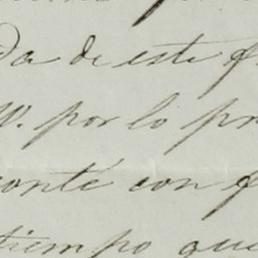 da de este
V. por lo pr
conté con f
tiempo que